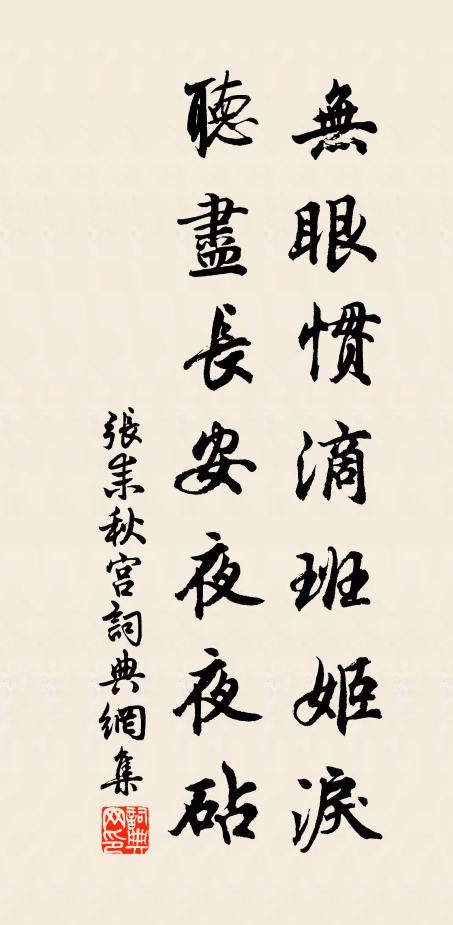 無眼慣滴班姬淚
聽盡長安夜夜砧
張耒秋宮詞典網集
詞典網印